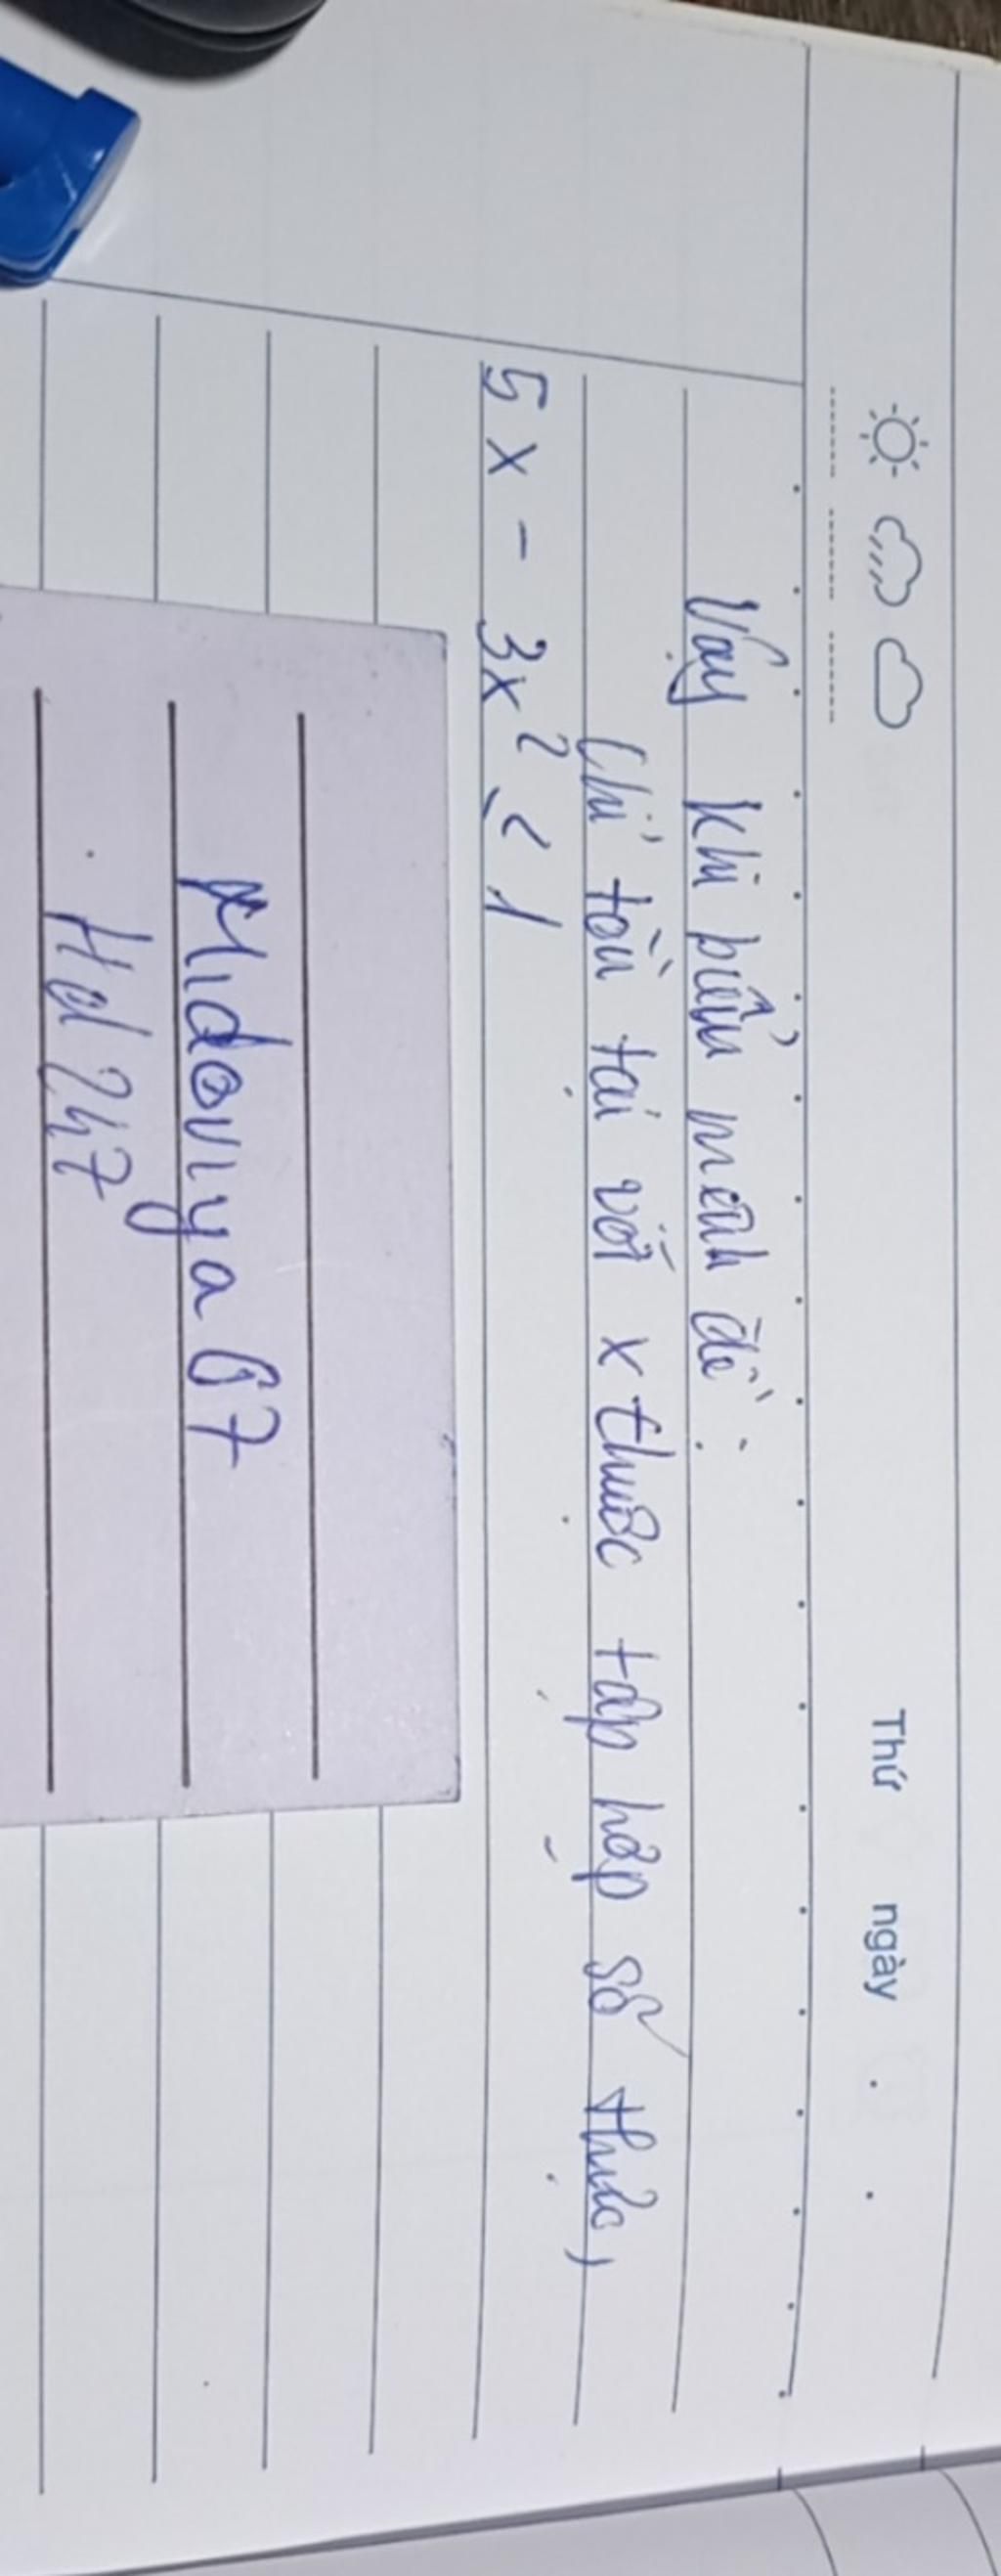 Thứ ngày
Vậy khi biểu mệnh đề :
Chỉ tồn tại với x thuộc tập hợp số thực,
5x - 3x² ≤ 1
Midoviya67
Hd247